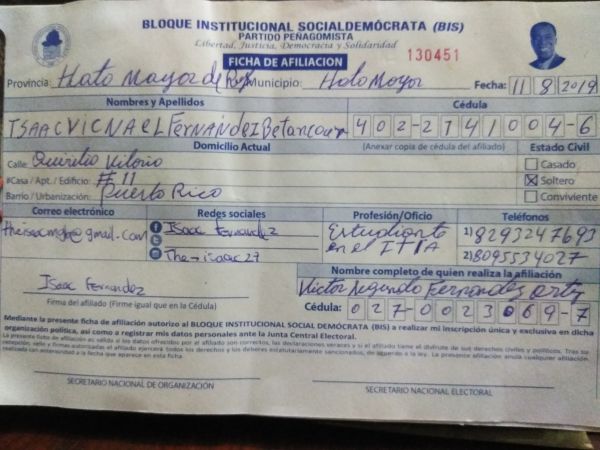 BLOQUE INSTITUCIONAL SOCIALDEMÓCRATA (BIS)
PARTIDO PEÑAGOMISTA
Libertad, Justicia, Democracia y Solidaridad
FICHA DE AFILIACION
130451
Provincia: Hato Mayor del Rey Municipio: Hato Mayor Fecha: 11 8 2019
Nombres y Apellidos Cédula
ISAAC Fernández Betancourt 402-2741004-6
Domicilio Actual (Anexar copia de cédula del afiliado) Estado Civil
Calle: Vilorio Casado
#Casa / Apt. / Edificio: #11 Soltero
Barrio / Urbanización: Puerto Rico Conviviente
Correo electrónico Redes sociales Profesión/Oficio Teléfonos
@gmail.com Isaac Fernandez Estudiante 1) 8293247693
The-isaac27 en el 2) 8095534027
Nombre completo de quien realiza la afiliación
Isaac Fernandez Victor Fernández
Firma del afiliado (Firme igual que en la Cédula) Cédula: 027-0023069-7
Mediante la presente ficha de afiliación autorizo al BLOQUE INSTITUCIONAL SOCIAL DEMÓCRATA (BIS) a realizar mi inscripción única y exclusiva en dicha
organización política, así como a registrar mis datos personales ante la Junta Central Electoral.
La presente ficha de afiliación es válida si los datos ofrecidos por el afiliado son correctos, las declaraciones veraces y si el afiliado tiene el disfrute de sus derechos civiles y políticos. Tras su
recepción, sello y firmas autorizadas el afiliado ejercerá todos los derechos y los deberes estatutariamente sancionados, de acuerdo a la ley. La presente afiliación anula cualquier afiliación
realizada con anterioridad a la fecha que aparece en esta ficha.
SECRETARIO NACIONAL DE ORGANIZACIÓN SECRETARIO NACIONAL ELECTORAL